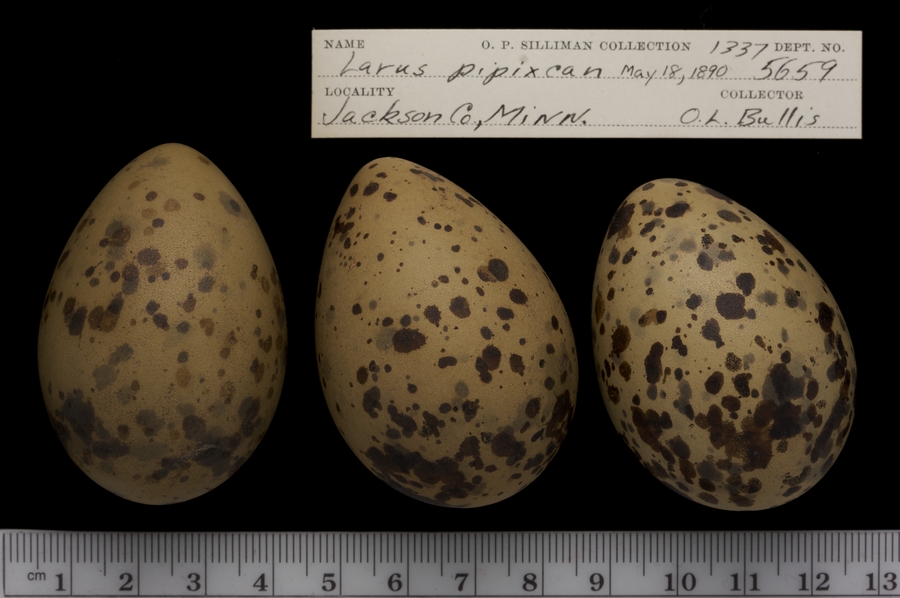 NAME O. P. SILLIMAN COLLECTION 1337 DEPT. NO.
Larus pipixcan May 18, 1890 5659
LOCALITY COLLECTOR
Jackson Co., Minn. O. L. Bullis
cm 1 2 3 4 5 6 7 8 9 10 11 12 13